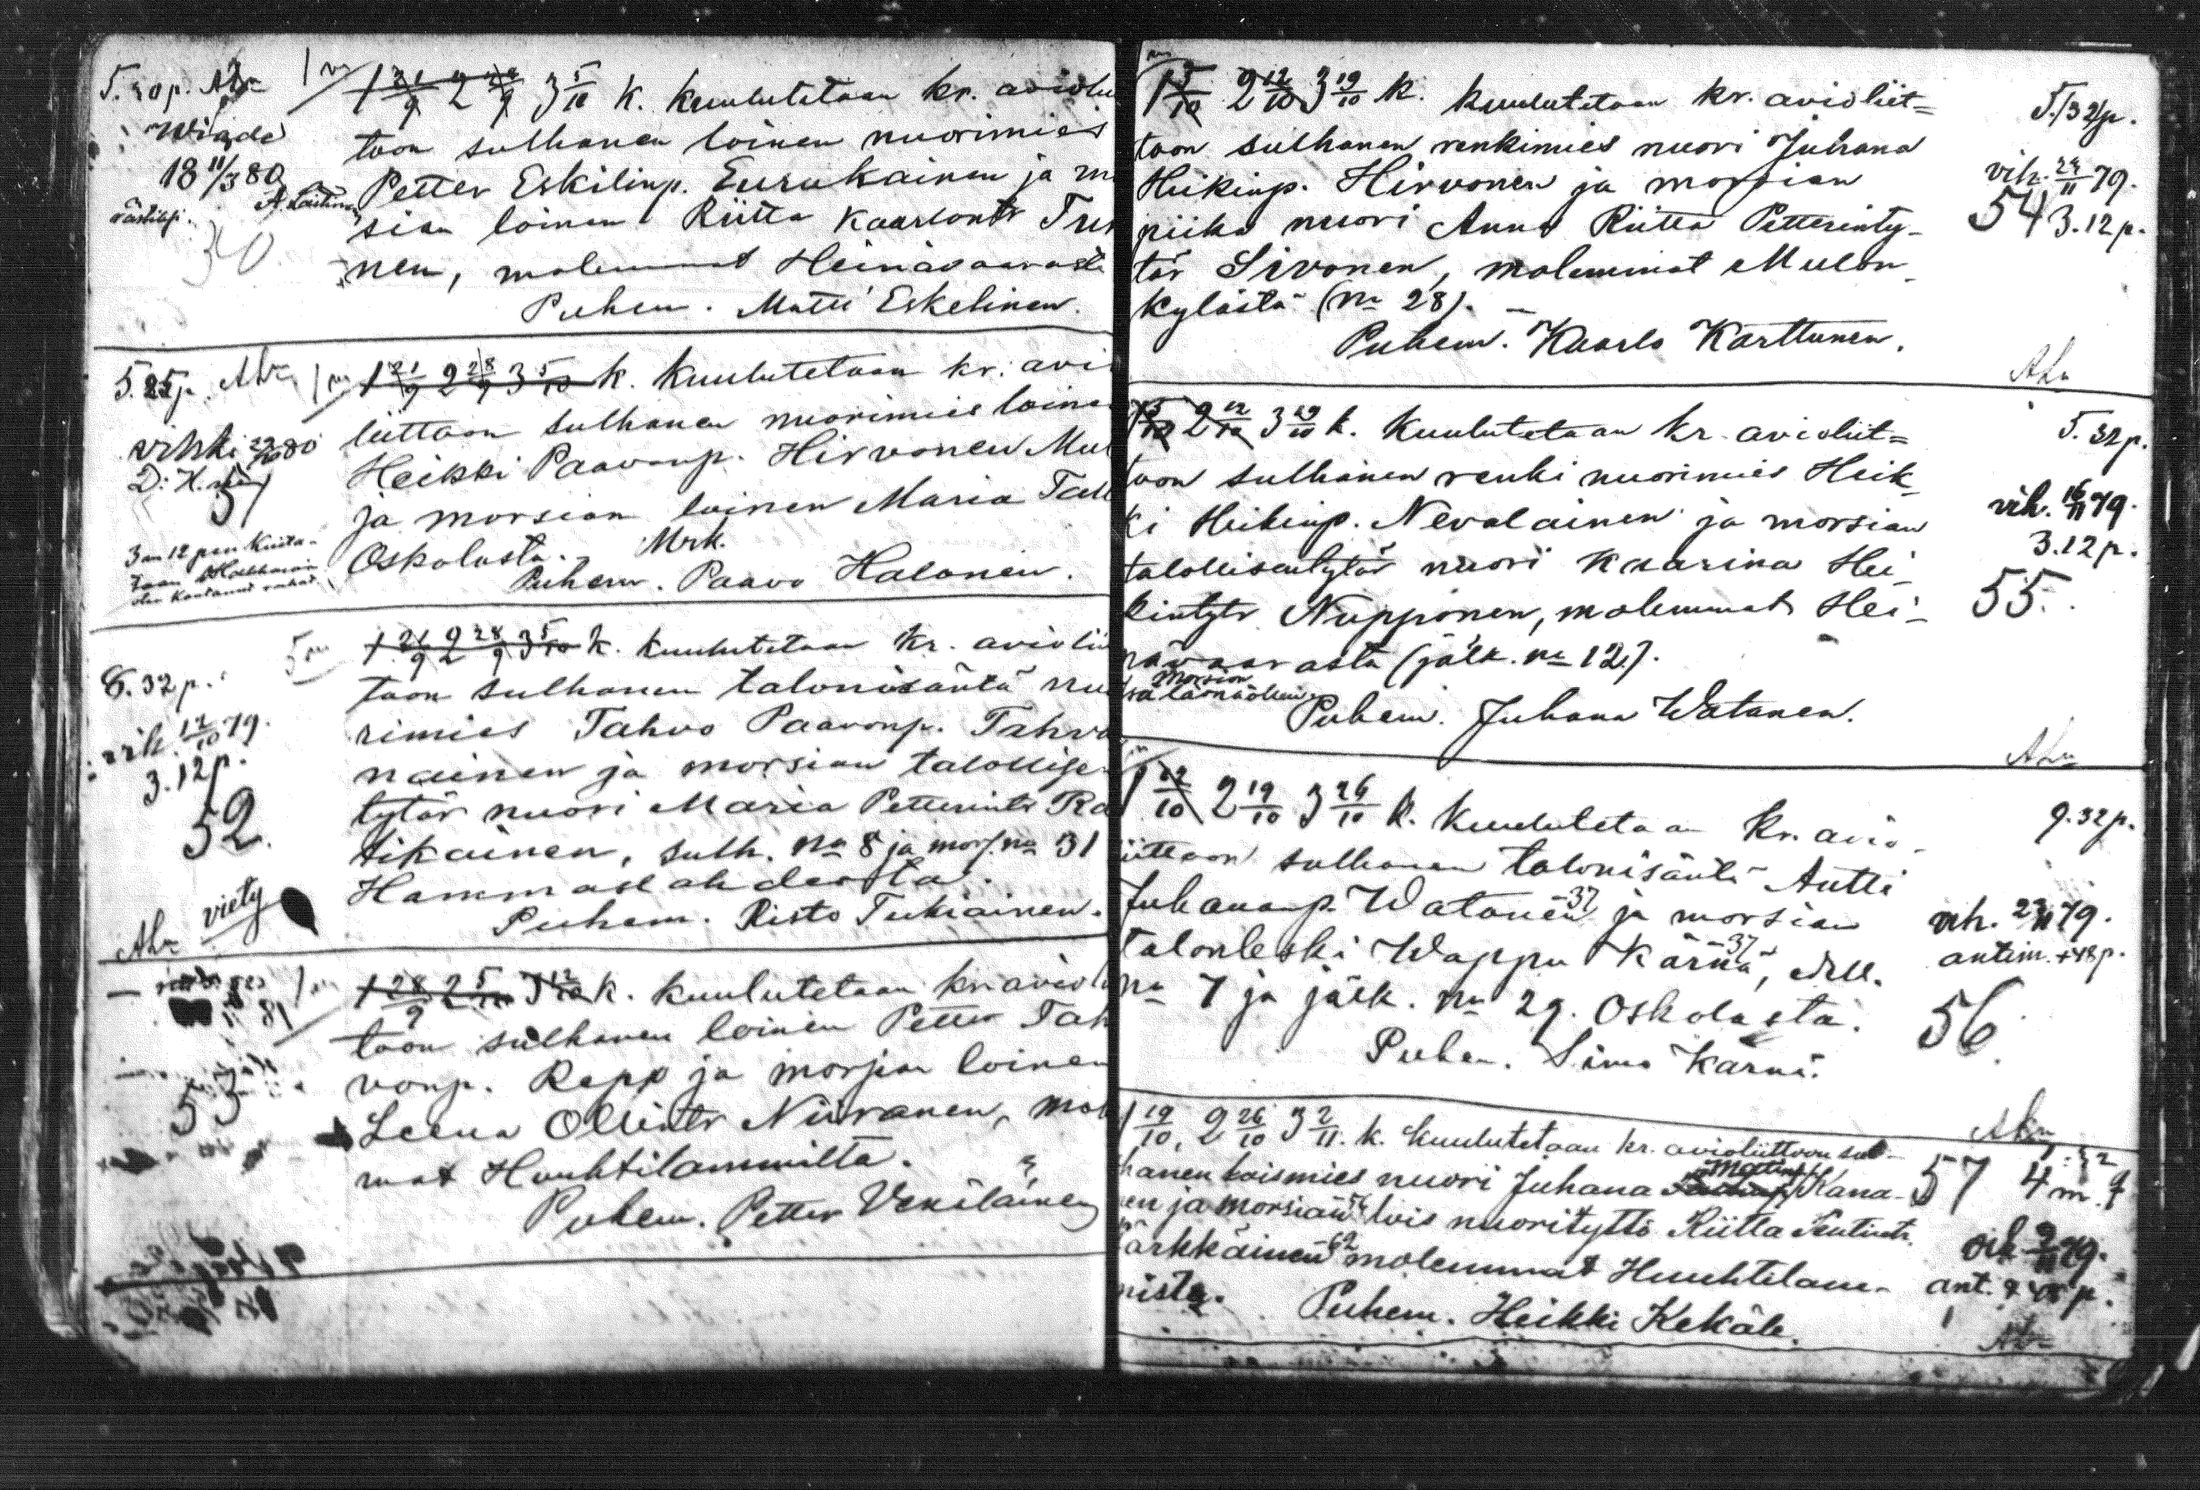 5.20p. ALn
Wigde
18 11/3 80
A Laitinen
50
1 21/9 2 28/9 3 5/10 k. kuulutetaan kr. avioliit
toon sulhanen loinen nuorimies
Petter Eskilinp. Eurukainen ja m
sian loinen Riitta Kaarlontr Tur
nen, molemmat Heinävaarasta
Puhem. Matti Eskelinen.
5.25p. ALn
vihki 80
D: H.
51
3 m 12 pen kuita-
taan
olen kantanut rahat
1 21/9 2 28/9 3 5/10 k. kuulutetaan kr. avi
liittoon sulhanen nuorimies loine
Heikki Paavonp. Hirvonen Mul
ja morsian loinen Maria Tal
Oskolasta. Mrk.
Puhem. Paavo Halonen.
8.32p.
vih. 12/10 79.
3.12p.
52.
viety
ALn
1 21/9 2 28/9 3 5/10 k. kuulutetaan kr. aviolii
toon sulhanen talonisäntä nuo
rimies Tahvo Paavonp. Tahva
nainen ja morsian talollisen
tytär nuori Maria Petterintr Ra
tikainen, sulh. No 8 ja mors. no 31
Hammaslahdesta.
Puhem. Risto Tukiainen.
53
1 28/9 2 5/10 3 12/10 k. kuulutetaan kr. avio
toon sulhanen loinen Petter Tah
vonp. Repp ja morsian loinen
Leena Ollintr Niiranen, mol
mat Huuhtilammilta.
Puhem. Petter Venäläinen
1 5/10 2 12/10 3 19/10 k. kuulutetaan kr. avioliit=
toon sulhanen renkimies nuori Juhana
Heikinp. Hirvonen ja morsian
piika nuori Anna Riitta Petterinty-
tär Sivonen, molemmat Mulon-
kylästä (no 28).
Puhem. Kaarlo Karttunen.
5./32/p.
vih. 24/11 79.
54 3.12p.
ALn
1 5/10 2 12/10 3 19/10 k. kuulutetaan kr. avioliit=
toon sulhanen renki nuorimies Heik-
ki Heikinp. Nevalainen ja morsian
talollisentytär nuori Kaarina Hei-
kintytr Nupponen, molemmat Hei-
nävaarasta (jälk. no 12).
Morsian
Puhem. Juhana Watanen.
5.32p.
vih. 16/11 79.
3.12p.
55.
ALn
1 12/10 2 19/10 3 26/10 k. kuulutetaan kr. avio-
liittoon sulhanen talonisäntä Antti
Juhananp. Watanen 37 ja morsian
talonleski Wappu Kärnä 37, edell.
no 7 ja jälk. no 29. Oskolasta.
Puhem. Simo Kärnä.
9.32p.
vih. 23/11 79.
antim. 48p.
56.
ALn
1 19/10, 2 26/10 3 2/11. k. kuulutetaan kr. avioliittoon sul-
hanen loismies nuori Juhana Matinp. Kana-
nen ja morsian lois nuorityttö Riitta Penttintr.
Kärkkäinen 62 molemmat Huuhtilam-
mista. Puhem. Heikki Kekäle.
57 4 m.
vih 9/11 79.
ant. 48 p.
ALn